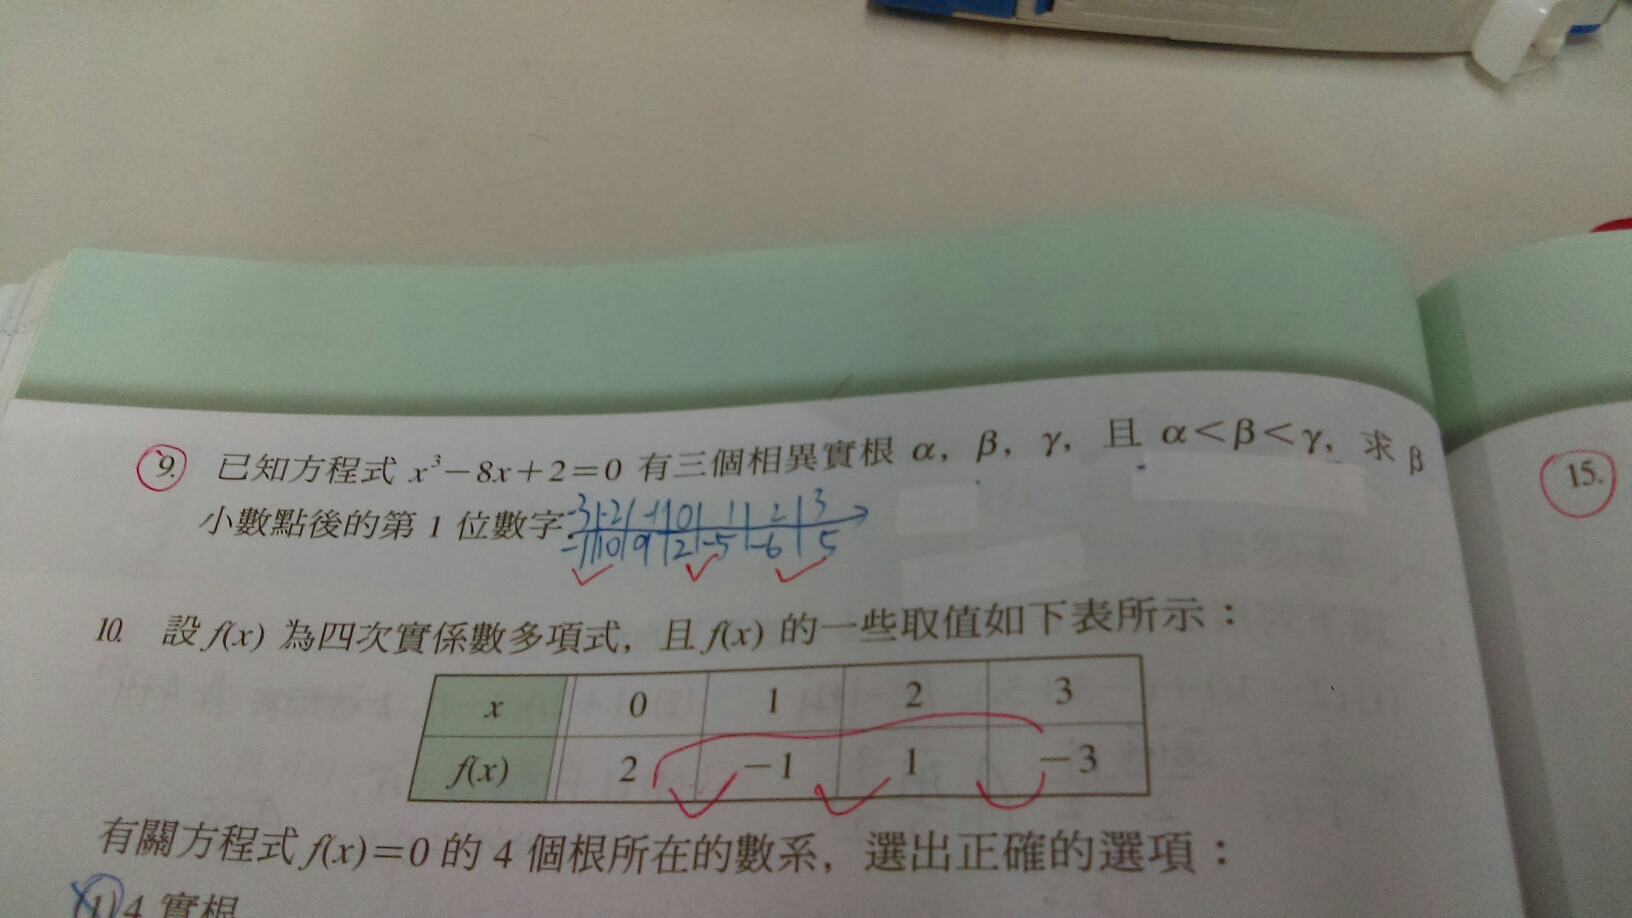 9. 已知方程式 x³−8x+2=0 有三個相異實根 α, β, γ, 且 α<β<γ, 求 β
小數點後的第 1 位數字
-3 -2 -1 0 1 2 3
-1 10 9 2 -5 -6 5
15.
10. 設 f(x) 為四次實係數多項式, 且 f(x) 的一些取值如下表所示：
x 0 1 2 3
f(x) 2 −1 1 −3
有關方程式 f(x)=0 的 4 個根所在的數系, 選出正確的選項：
(1) 4 實根